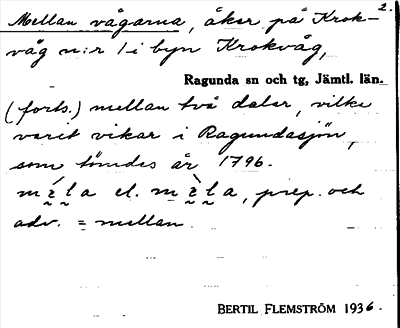 2.
Mellan vågarna, åker på Krok-
våg n:r 1 i byn Krokvåg,
Ragunda sn och tg, Jämtl. län.
(forts.) mellan två dalar, vilka
varit vikar i Ragundasjön,
som tömdes år 1796.
mela el. mela, prep. och
adv. = mellan.
BERTIL FLEMSTRÖM 1936.